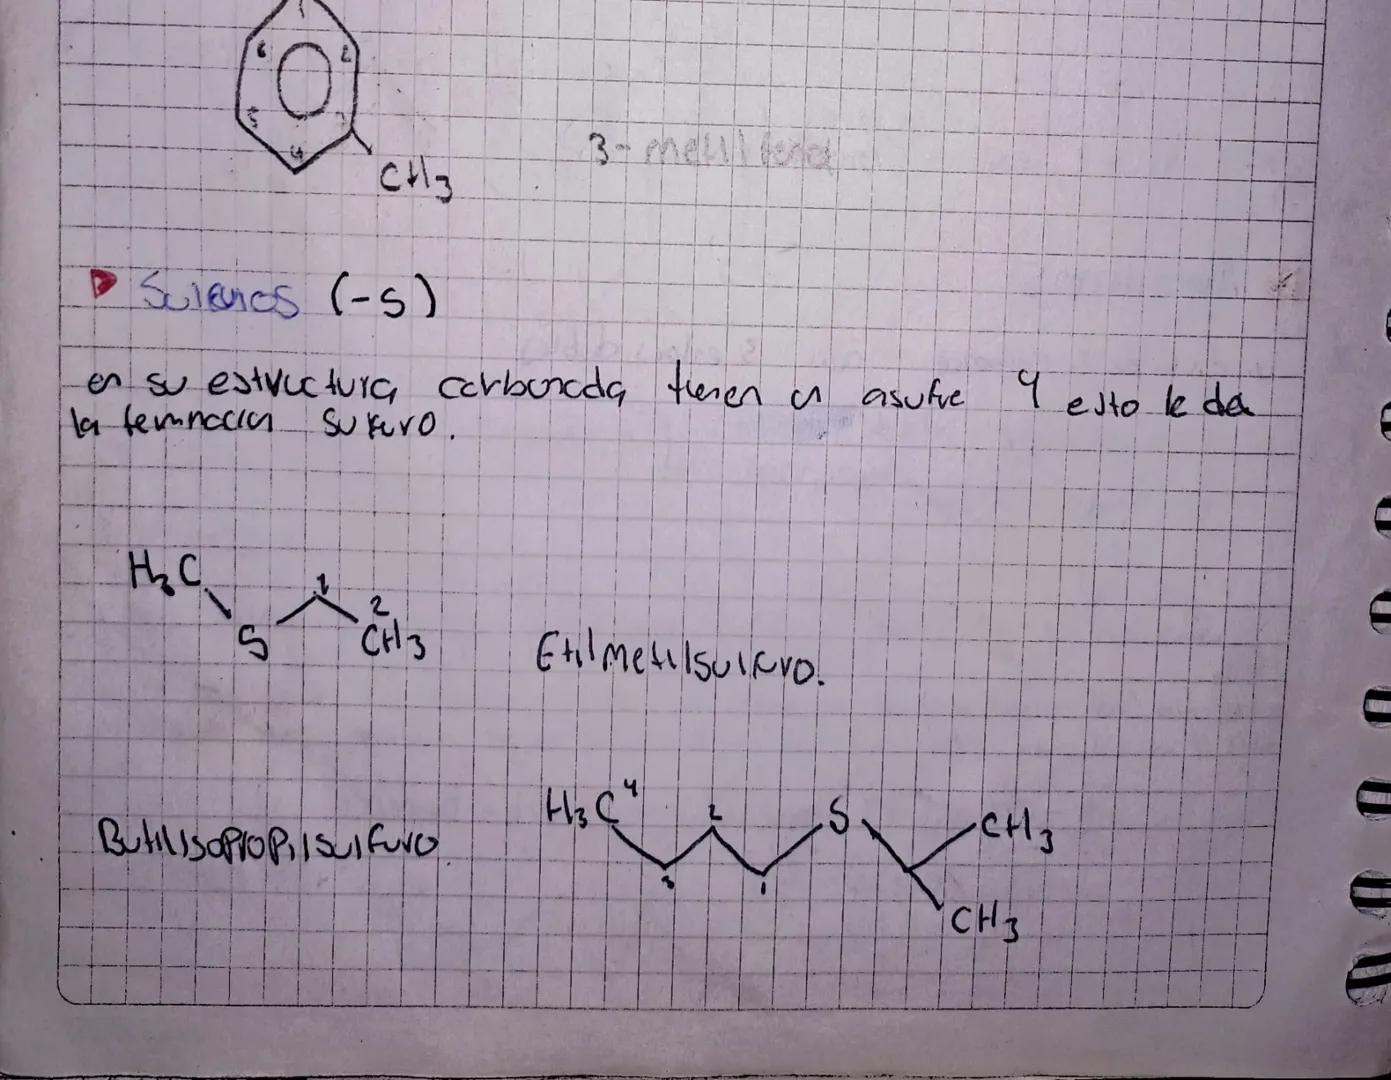 1
6 2
5 3
4
CH3
3-metil fenol
(-S)
en su estructura carbonada tienen un asufre y esto le da
la terminacion sulfuro.
H3C
1
2
S
CH3
Etilmetilsulfuro.
H3C 4
2
S
CH3
Butilisopropilsulfuro.
3
1
CH3